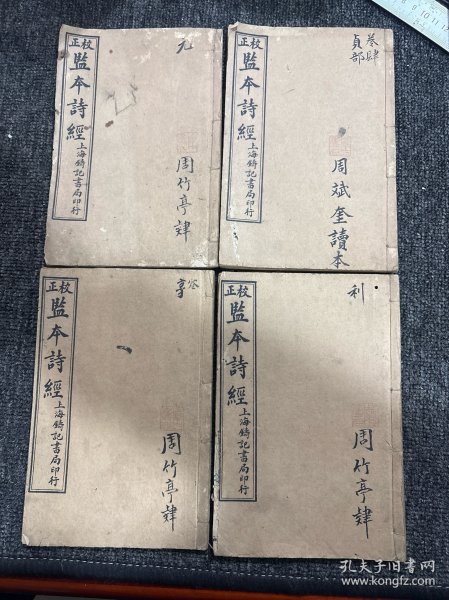 校正
監本詩經
上海鑄記書局印行
元
周竹亭肄
校正
監本詩經
上海鑄記書局印行
卷肆
貞部
周斌奎讀本
校正
監本詩經
上海鑄記書局印行
亨
周竹亭肄
校正
監本詩經
上海鑄記書局印行
利
周竹亭肄
孔夫子旧书网
www.kongfz.com